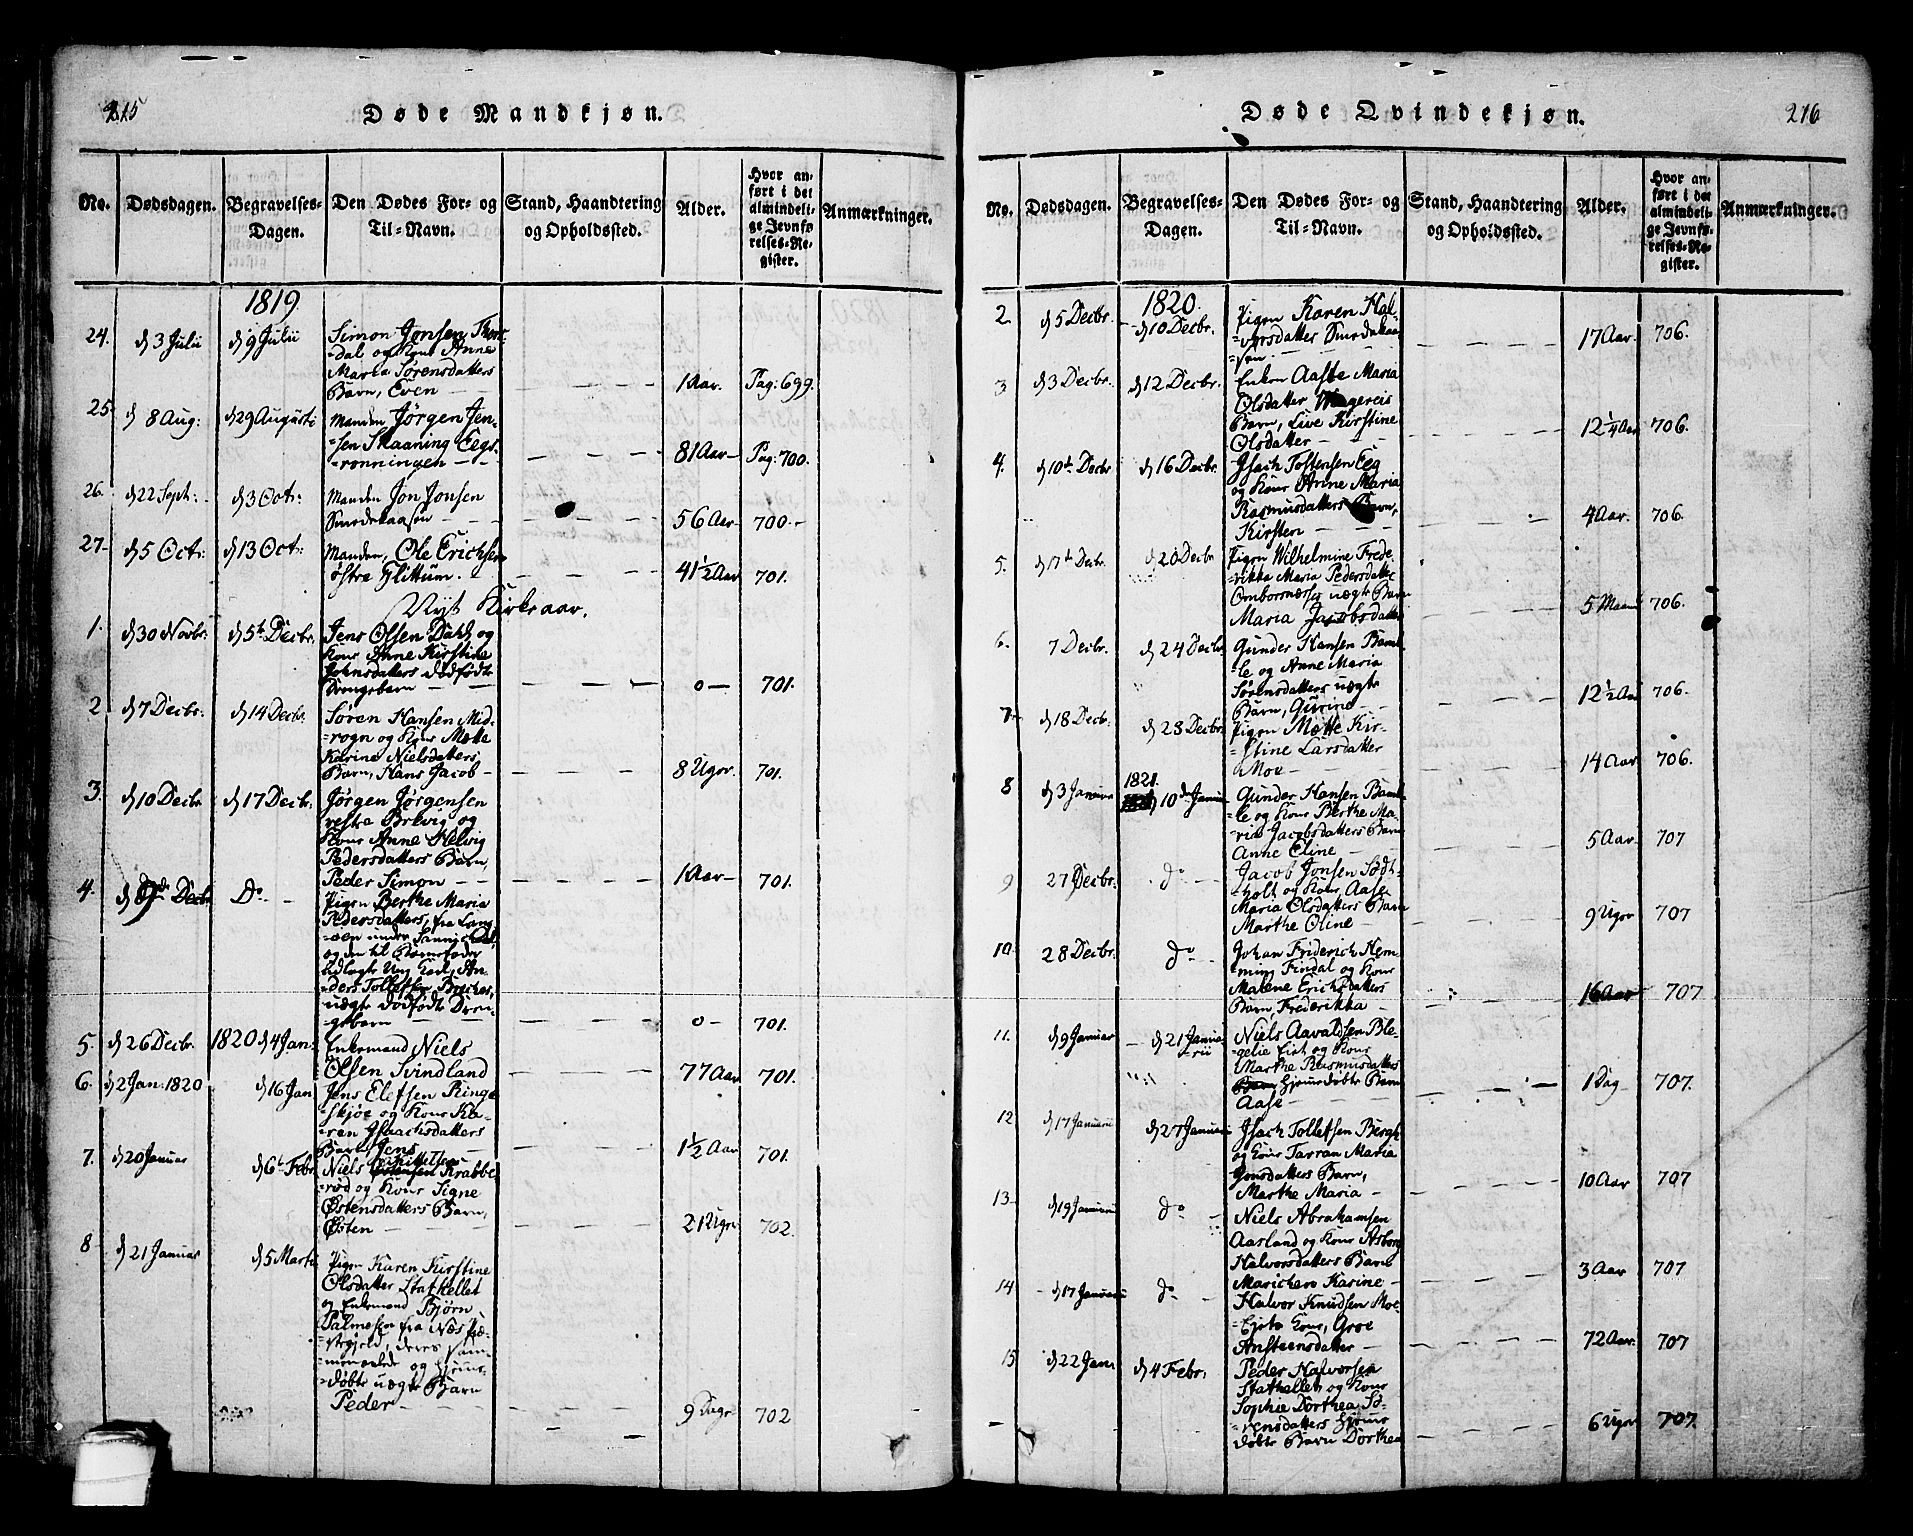 215
Døde Mandkjøn.
No.
Dødsdagen.
Begravelses-
Dagen.
Den Dødes For- og
Til-Navn.
Stand, Haandtering
og Opholdssted.
Alder.
Hvor an-
ført i det
almindeli-
ge Jevnfø-
relses-Re-
gister.
Anmærkninger.
1819.
24. d 3 Julii d 9 Julii
Simon Jonsen
=dal og Kone Anne
Maria Sørensdatters
Barn, Even — 1 Aar. Pag: 699.
25. d 8 Aug: d 29 Augusti
Manden Jørgen Jen-
=sen Skaaning Eegs-
=rønningen — 81 Aar — Pag: 700.
26. d 22 Sept: d 3 Octr:
Manden Jon Jonsen
Smedekaasen — 56 Aar — 700.
27. d 5 Octr: d 13 Oct:
Manden, Ole Erichsen
østre Flittum. — 41½ Aar 701.
Nyt Kirkeaar.
1. d 30 Novbr: d 5t Decbr.
Jens Olsen Dahl og
Kone Anne Kirstine
Johnsdatters dødfødte
Drengebarn — 0 — 701.
2 d 7 Decbr: d 14 Decbr.
Søren Hansen Mid-
=rogn og Kone Mætte
Karine Nielsdatters
Barn, Hans Jacob — 8 Uger. 701.
3. d 10 Decbr d 17 Decbr.
Jørgen Jørgensen
vestre Brevig og
Kone Anne Helvig
Pedersdatters Barn,
Peder Simon — 1 Aar — 701.
4. Decbr Do
Pigen Berthe Maria
Pedersdatters, fra Lang-
=øen under
og den til Barnefader
udlagte Ung Karl, An-
=ders Tollefsen
uægte dødfødte Dren-
=gebarn — 0 — 701.
5. d 26 Decbr. 1820 d 4 Jan:
Enkemand Niels
Olsen Svindland 77 Aar 701.
6. d 2 Jan: 1820 d 16 Jan
Jens Elefsen Ringe-
=skjøe og Kone Ka-
=ren Isachsdatters
Barn, Jens — 1½ Aar 701.
7. d 20 Januar d 6t Febr
Niels Kittelsen Krabbe-
=rød og Kone Signe
Østensdatters Barn,
Østen — 21 Uger 702.
8 d 21 Januar d 5 Marts
Pigen Karen Kirstine
Olsdatter Stathellet
og Enkemand Bjørn
Palmesen fra Næs Præ-
=stegjeld, deres sam-
=menavlede og hjemme-
=døbte uægte Barn
Peder — 9 Dage 702
216
Døde Qvindekjøn.
No.
Dødsdagen.
Begravelses-
Dagen.
Den Dødes For- og
Til-Navn.
Stand, Haandtering
og Opholdssted.
Alder.
Hvor an-
ført i det
almindeli-
ge Jevnfø-
relses-Re-
gister.
Anmærkninger.
1820.
2. d 5 Decbr. d 10 Decbr.
Pigen Karen Hal-
=vorsdatter Smedekaa-
=sen — 17 Aar. 706.
3 d 3 Decbr. d 12 Decbr.
Enken Aaste Maria
Olsdatter
Barn, Live Kirstine
Olsdatter — 12¼ Aar 706.
4. d 10t Decbr d 16 Decbr.
Isach Tostensen Eeg
og Kone Anne Maria
Rasmusdatters Barn,
Kirsten — 4 Aar. 706.
5. d 17t Decbr. d 20 Decbr
Pigen Wilhelmine Frede-
=rikka Maria Pedersdatter
Omborsnæsses uægte Barn
Maria Jacobsdatter 5 Maan 706.
6. 7 Decbr. d 24 Decbr.
Gunder Hansen Bamb-
=le og Anne Maria
Sørensdatters uægte
Barn, Gurine — 12½ Aar 706.
7 d 18 Decbr: d 28 Decbr.
Pigen Mætte Kir-
=stine Larsdatter
Moe — 14 Aar 706.
1821.
8 d 3 Januar 10de Januar
Gunder Hansen Bamb-
=le og Kone Berthe Ma-
=ria Jacobsdatters Barn
Anne Eline — 5 Aar 707
9 27 Decbr. Do
Jacob Jonsen Sødt-
=holt og Kone, Aase
Maria Olsdatters Barn
Marthe Oline — 9 Uger 707
10. 28 Decbr. Do
Johan Friderich Hem-
=ming Findal og Kone
Malene Erichsdatters
Barn, Frederikka — 16 Aar 707
11. d 9 Januar — d 21 Janua-
=rii
Niels Aavaldsen Ble-
=gelie Eiet og Kone
Marthe Rasmusdatters
hjemmedøbte Barn
Aase — 1 Dag — 707.
12 d 17 Januarii d 27 Januar
Isach Tollefsen Bergh
og Kone Tarran Maria
Jonsdatters Barn,
Marthe Maria — 10 Aar 707
13 d 19 Januarii Do
Niels Abrahamsen
Aasland og Kone Asborg
Halvorsdatters Barn
Marichen Karine — 3 Aar 707
14 d 17 Januarii Do
Halvor Knudsen Moe-
=Ejets Kone, Groe
Ansteensdatter — 72 Aar. 707
15 d 22 Jan: d 4 Febr.
Peder Halvorsen
Stathellet og Kone
Sophie Dorthea Sø-
=rensdatters hjemme
døbte Barn Dorthea 6 Uger 707.